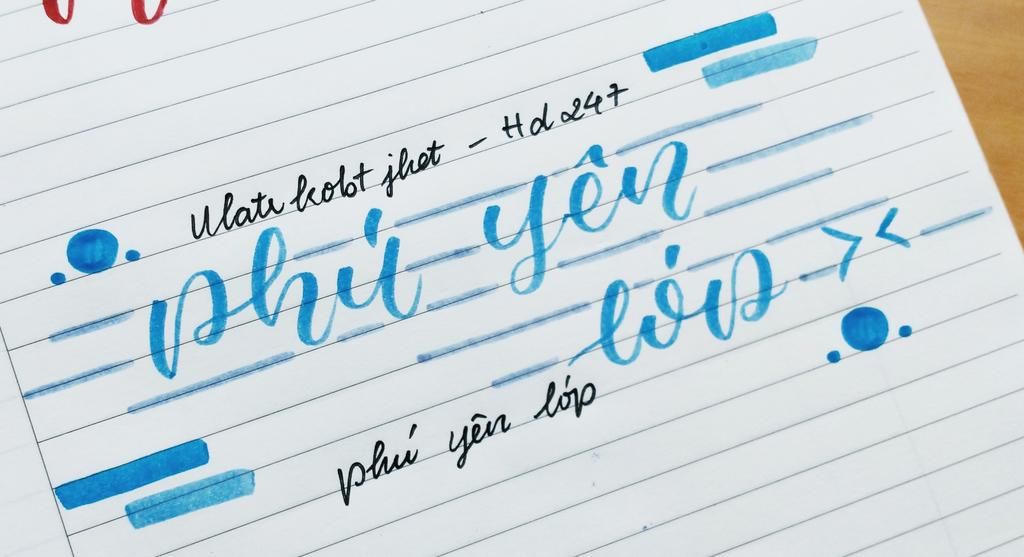 Ulatr kobt jhet - Hd247
phú yên
lớp ><
phú yên lớp